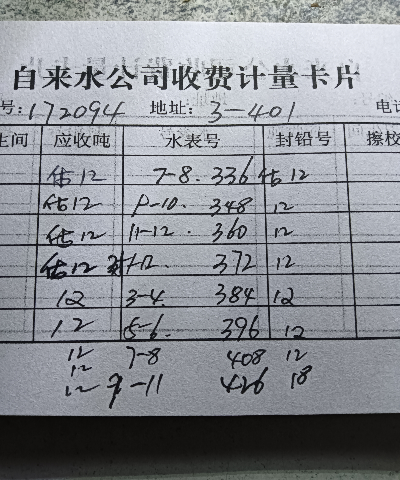 自来水公司收费计量卡片
号:172094 地址:3-401 电话
间 应收吨 水表号 封铅号 擦校
估12 7-8. 336 估12
估12 9-10. 348 12
估12 11-12. 360 12
估12 1-2. 372 12
12 3-4. 384 12
12 5-6. 396 12
12 7-8 408 12
12
12 9-11 426 18